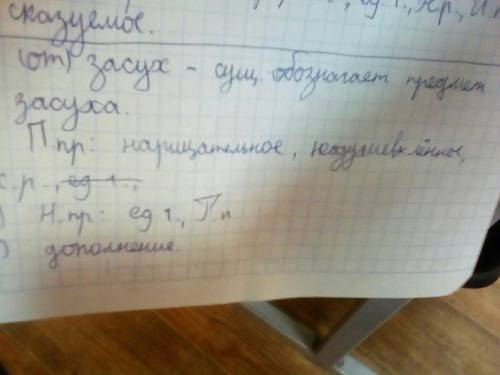 сказуемое.
ед. ч.,
(от) засух - сущ. обозначает предмет
засуха.
П.пр: нарицательное, неодушевлённое,
с.р., ед ч.,
Н.пр: ед ч., Р.п.
дополнение.